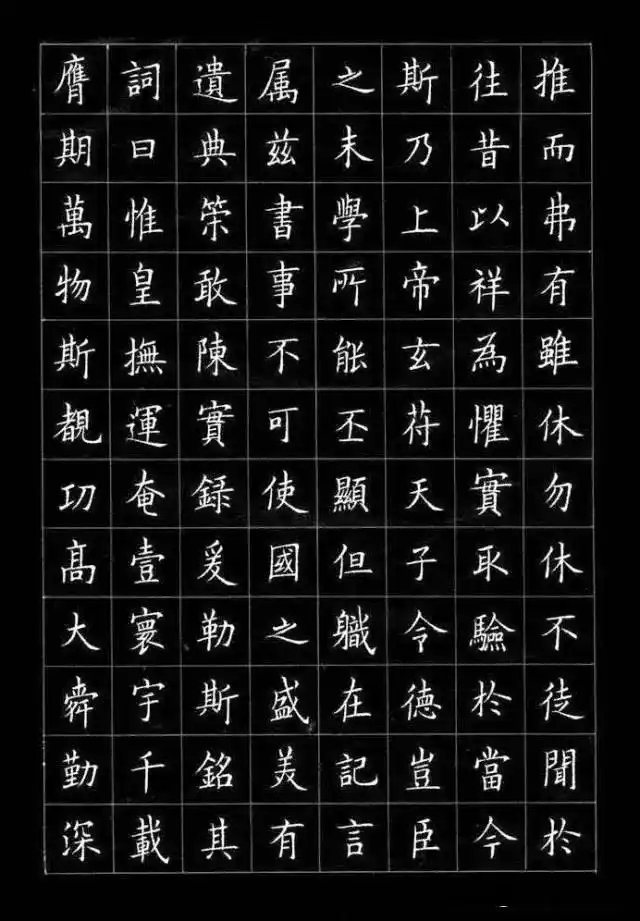 推而弗有雖休勿休不徒聞於
往昔以祥為懼實取驗於當今
斯乃上帝玄苻天子令德豈臣
之末學所能丕顯但職在記言
属茲書事不可使國之盛美有
遺典策敢陳實録爰勒斯銘其
詞曰惟皇撫運奄壹寰宇千載
膺期萬物斯覩功高大舜勤深